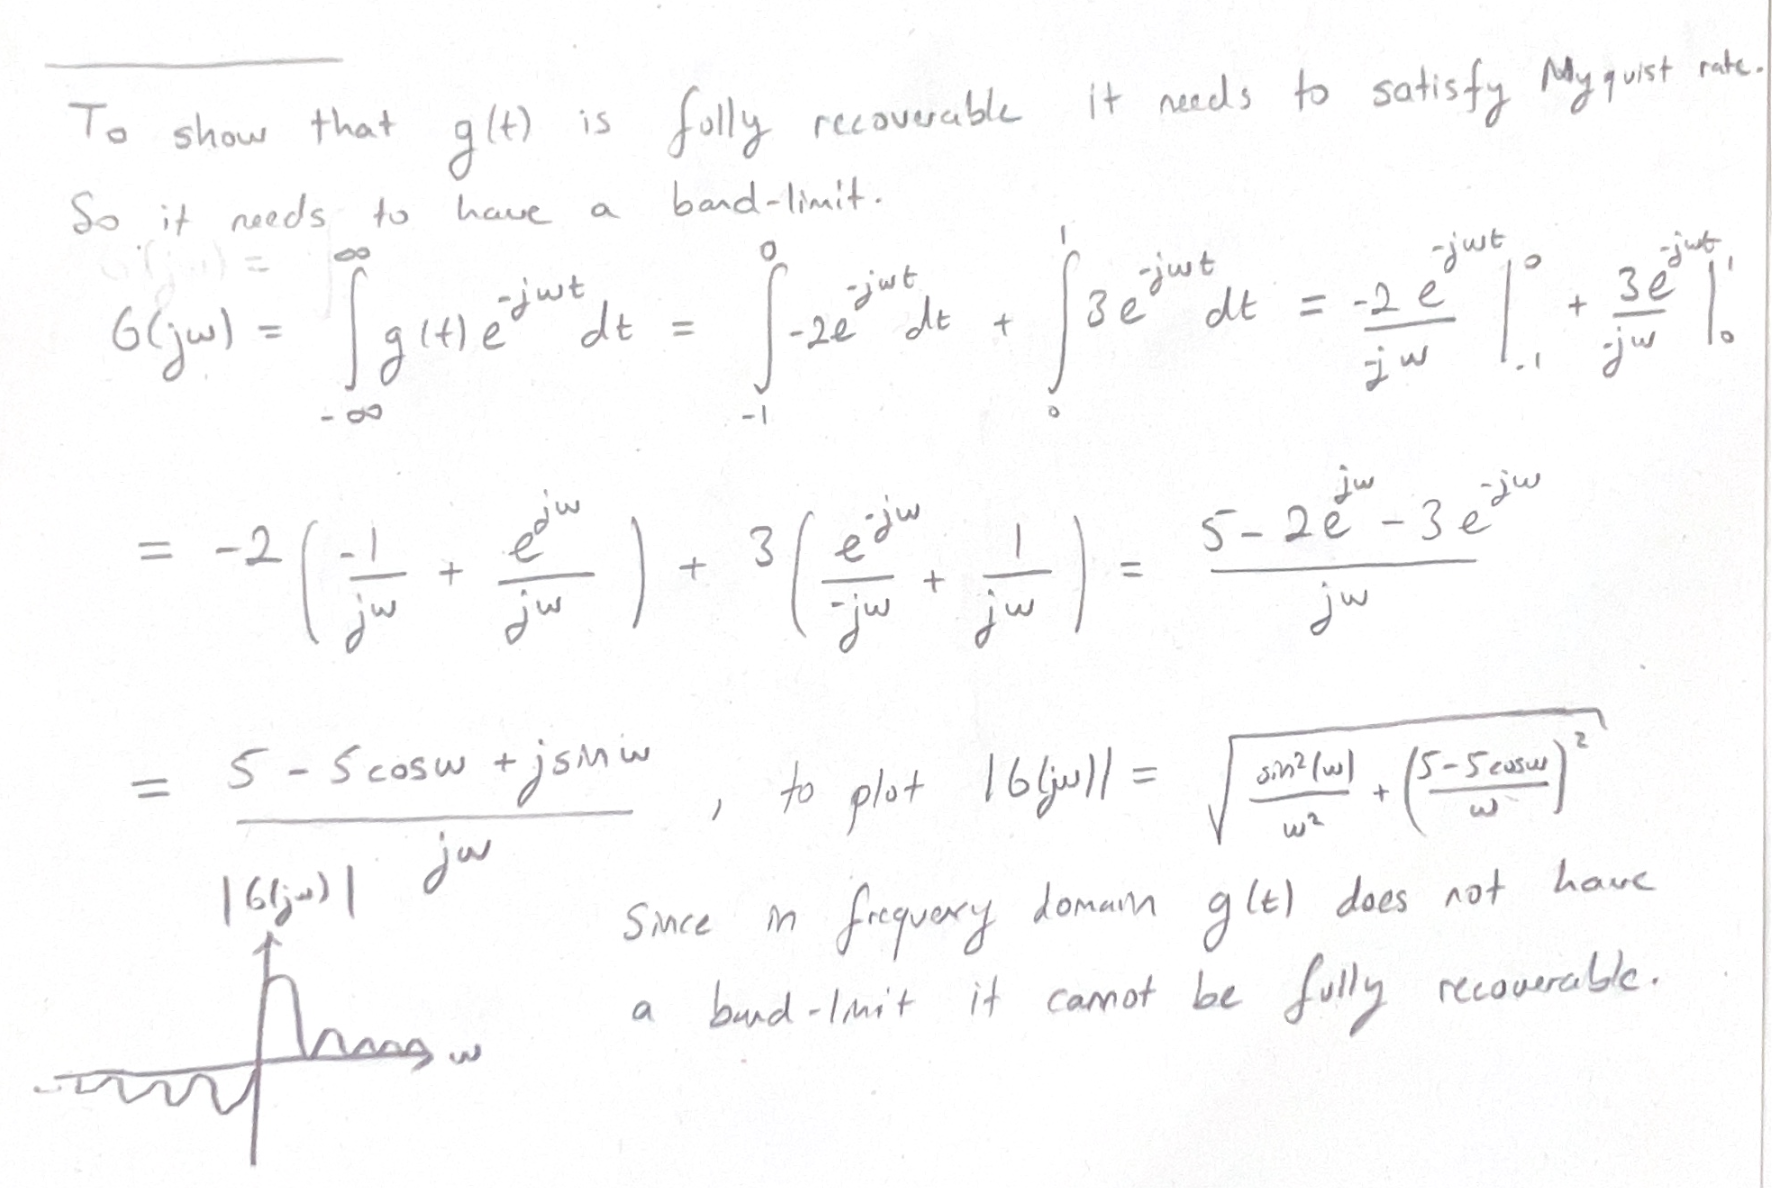 To show that g(t) is fully recoverable it needs to satisfy Nyquist rate.
So it needs to have a band-limit.
G(jω) = ∫_{-∞}^{∞} g(t) e^{-jωt} dt = ∫_{-1}^{0} -2e^{-jωt} dt + ∫_{0}^{1} 3e^{-jωt} dt = \frac{-2e^{-jωt}}{-jω} |_{-1}^{0} + \frac{3e^{-jωt}}{-jω} |_{0}^{1}
= -2 ( \frac{-1}{jω} + \frac{e^{jω}}{jω} ) + 3 ( \frac{e^{-jω}}{-jω} + \frac{1}{jω} ) = \frac{5 - 2e^{jω} - 3e^{-jω}}{jω}
= \frac{5 - 5cosω + jsinω}{jω} , to plot |G(jω)| = \sqrt{\frac{sin²(ω)}{ω²} + (\frac{5-5cosω}{ω})²}
|G(jω)|
Since in frequency domain g(t) does not have
a band-limit it cannot be fully recoverable.
ω